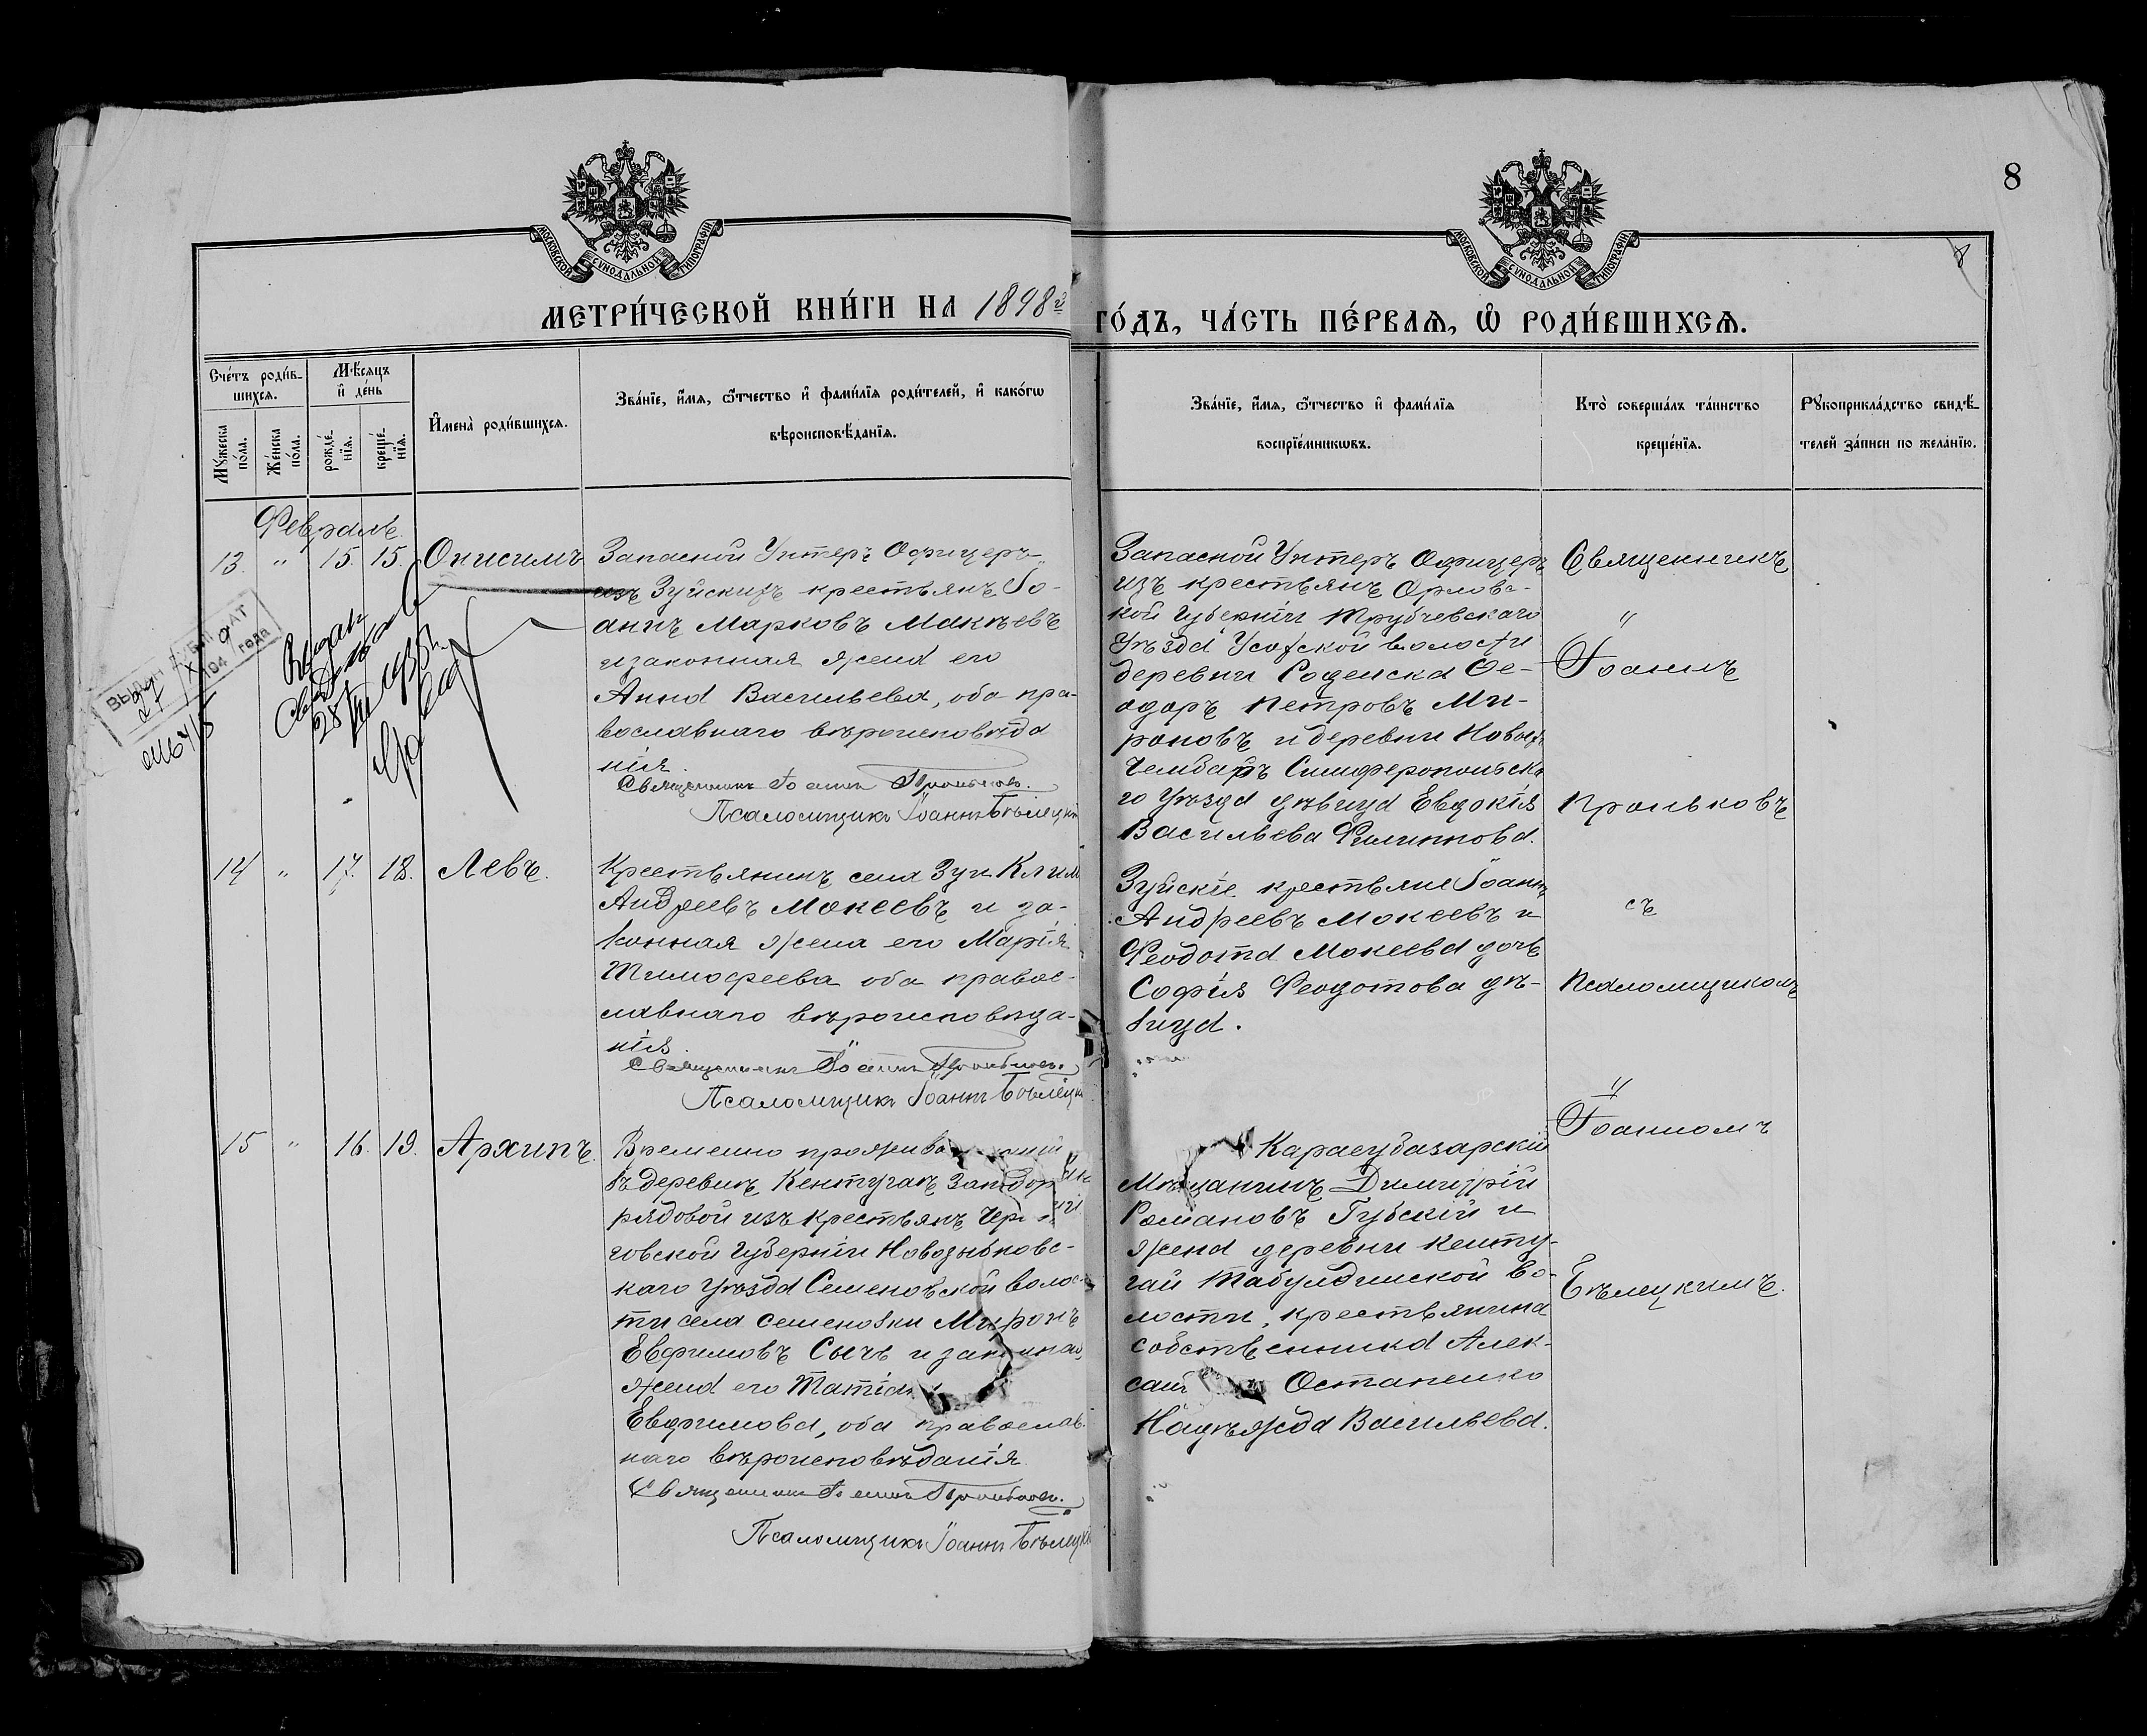 8
8
МОСКОВСКОЙ СУНОДАЛЬНОЙ ТИПОГРАФІИ
МОСКОВСКОЙ СУНОДАЛЬНОЙ ТИПОГРАФІИ
МЕТРИ́ЧЕСКОЙ КНИ́ГИ НА 1898й
ГО́ДЪ, ЧА́СТЬ ПЕ́РВАѦ, Ѡ РОДИ́ВШИХСѦ.
Сче́тъ роди́в-
шихсѧ.
Мѣ́сѧцъ
и҆ де́нь
Мꙋ́жеска
по́ла.
Же́нска
по́ла.
рожде́-
нїѧ.
креще́-
нїѧ.
И҆мена̀ роди́вшихсѧ.
Зва́нїе, и҆́мѧ, ѻ҆́тчество и҆ фами́лїѧ роди́телей, и҆ како́гѡ
вѣроисповѣ́данїѧ.
Зва́нїе, и҆́мѧ, ѻ҆́тчество и҆ фами́лїѧ
воспрїе́мникѡвъ.
Кто̀ соверша́лъ та́инство
креще́нїѧ.
Рꙋкоприкла́дство свидѣ́-
телей за́писи по жела́нїю.
Февраль
13. " 15. 15. Онисимъ
Запасной Унтеръ Офицеръ
изъ Зуйскихъ крестьянъ Іо-
аннъ Марковъ Макѣевъ
и законная жена его
Анна Васильева, оба пра-
вославнаго вѣроисповѣда
нія.
Священникъ Іоаннъ Проньковъ.
Псаломщикъ Іоаннъ Бѣлецкі
Запасной Унтеръ Офицеръ
изъ крестьянъ Орловс-
кой Губерніи Трубчевскаго
Уѣзда Усохской волости
деревни Роденска Ѳе-
одоръ Петровъ Ми-
роновъ и деревни Новый
Чембай Симферопольска
го Уѣзда дѣвица Евдокія
Васильева Филиппова.
Священникъ
"
Іоаннъ
Проньковъ
ВЫДАН ДУБЛИКАТ
27 / X 194 года
Выдан
28
1935 г.
14 " 17. 18. Левъ.
Крестьянинъ села Зуи Клим
Андреевъ Мокеевъ и за-
конная жена его Марія
Тимофеева оба правос-
лавнаго вѣроисповѣда-
нія.
Священникъ Іоаннъ Проньковъ.
Псаломщикъ Іоаннъ Бѣлецкі
Зуйскіе крестьяне Іоаннъ
Андреевъ Мокеевъ и
Феодота Мокеева дочь
Софія Феодотова дѣ-
вица.
съ
Псаломщикомъ
"
Іоанномъ
Бѣлецкимъ.
15 " 16. 19. Архипъ.
Временно прожива
въ деревнѣ Кентугаѣ
рядовой изъ крестьянъ Чер
говской Губерніи Новозыбковс-
каго Уѣзда Семеновской волос-
ти села Семеновки Миронъ
Евфимовъ Сычъ и законная
жена его
Евфимова, оба православ-
наго вѣроисповѣданія
Священникъ Іоаннъ Проньковъ.
Псаломщикъ Іоаннъ Бѣлецкі
Карасубазарскій
Мѣщанинъ Димитрій
Романовъ Губскій и
жена деревни Кенту-
гай Табулдинской во-
лости, крестьянина
собственника Алек-
сѣя Остапенко
Надѣжда Васильева.